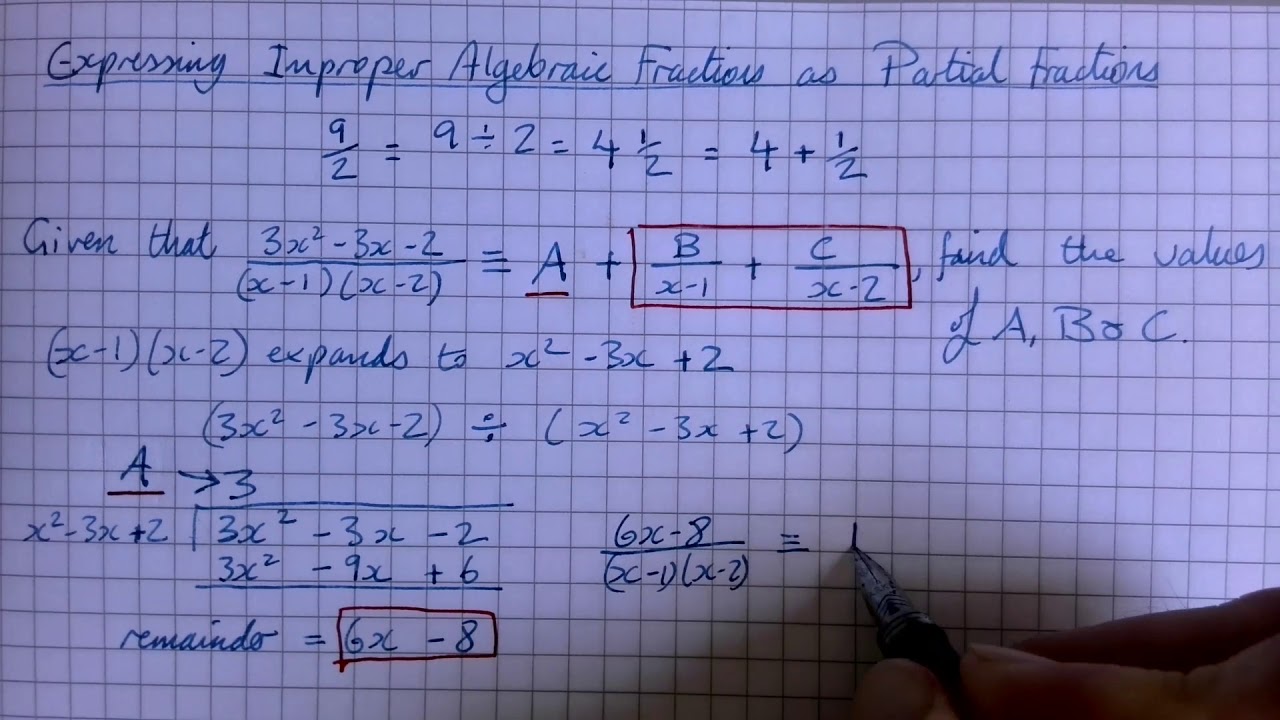 Expressing Improper Algebraic Fractions as Partial Fractions
9/2 = 9 ÷ 2 = 4 1/2 = 4 + 1/2
Given that (3x² - 3x - 2)/((x-1)(x-2)) ≡ A + B/(x-1) + C/(x-2), find the values
of A, B & C.
(x-1)(x-2) expands to x² - 3x + 2
(3x² - 3x - 2) ÷ (x² - 3x + 2)
A → 3
x² - 3x + 2 | 3x² - 3x - 2
3x² - 9x + 6
remainder = 6x - 8
(6x - 8)/((x-1)(x-2)) ≡